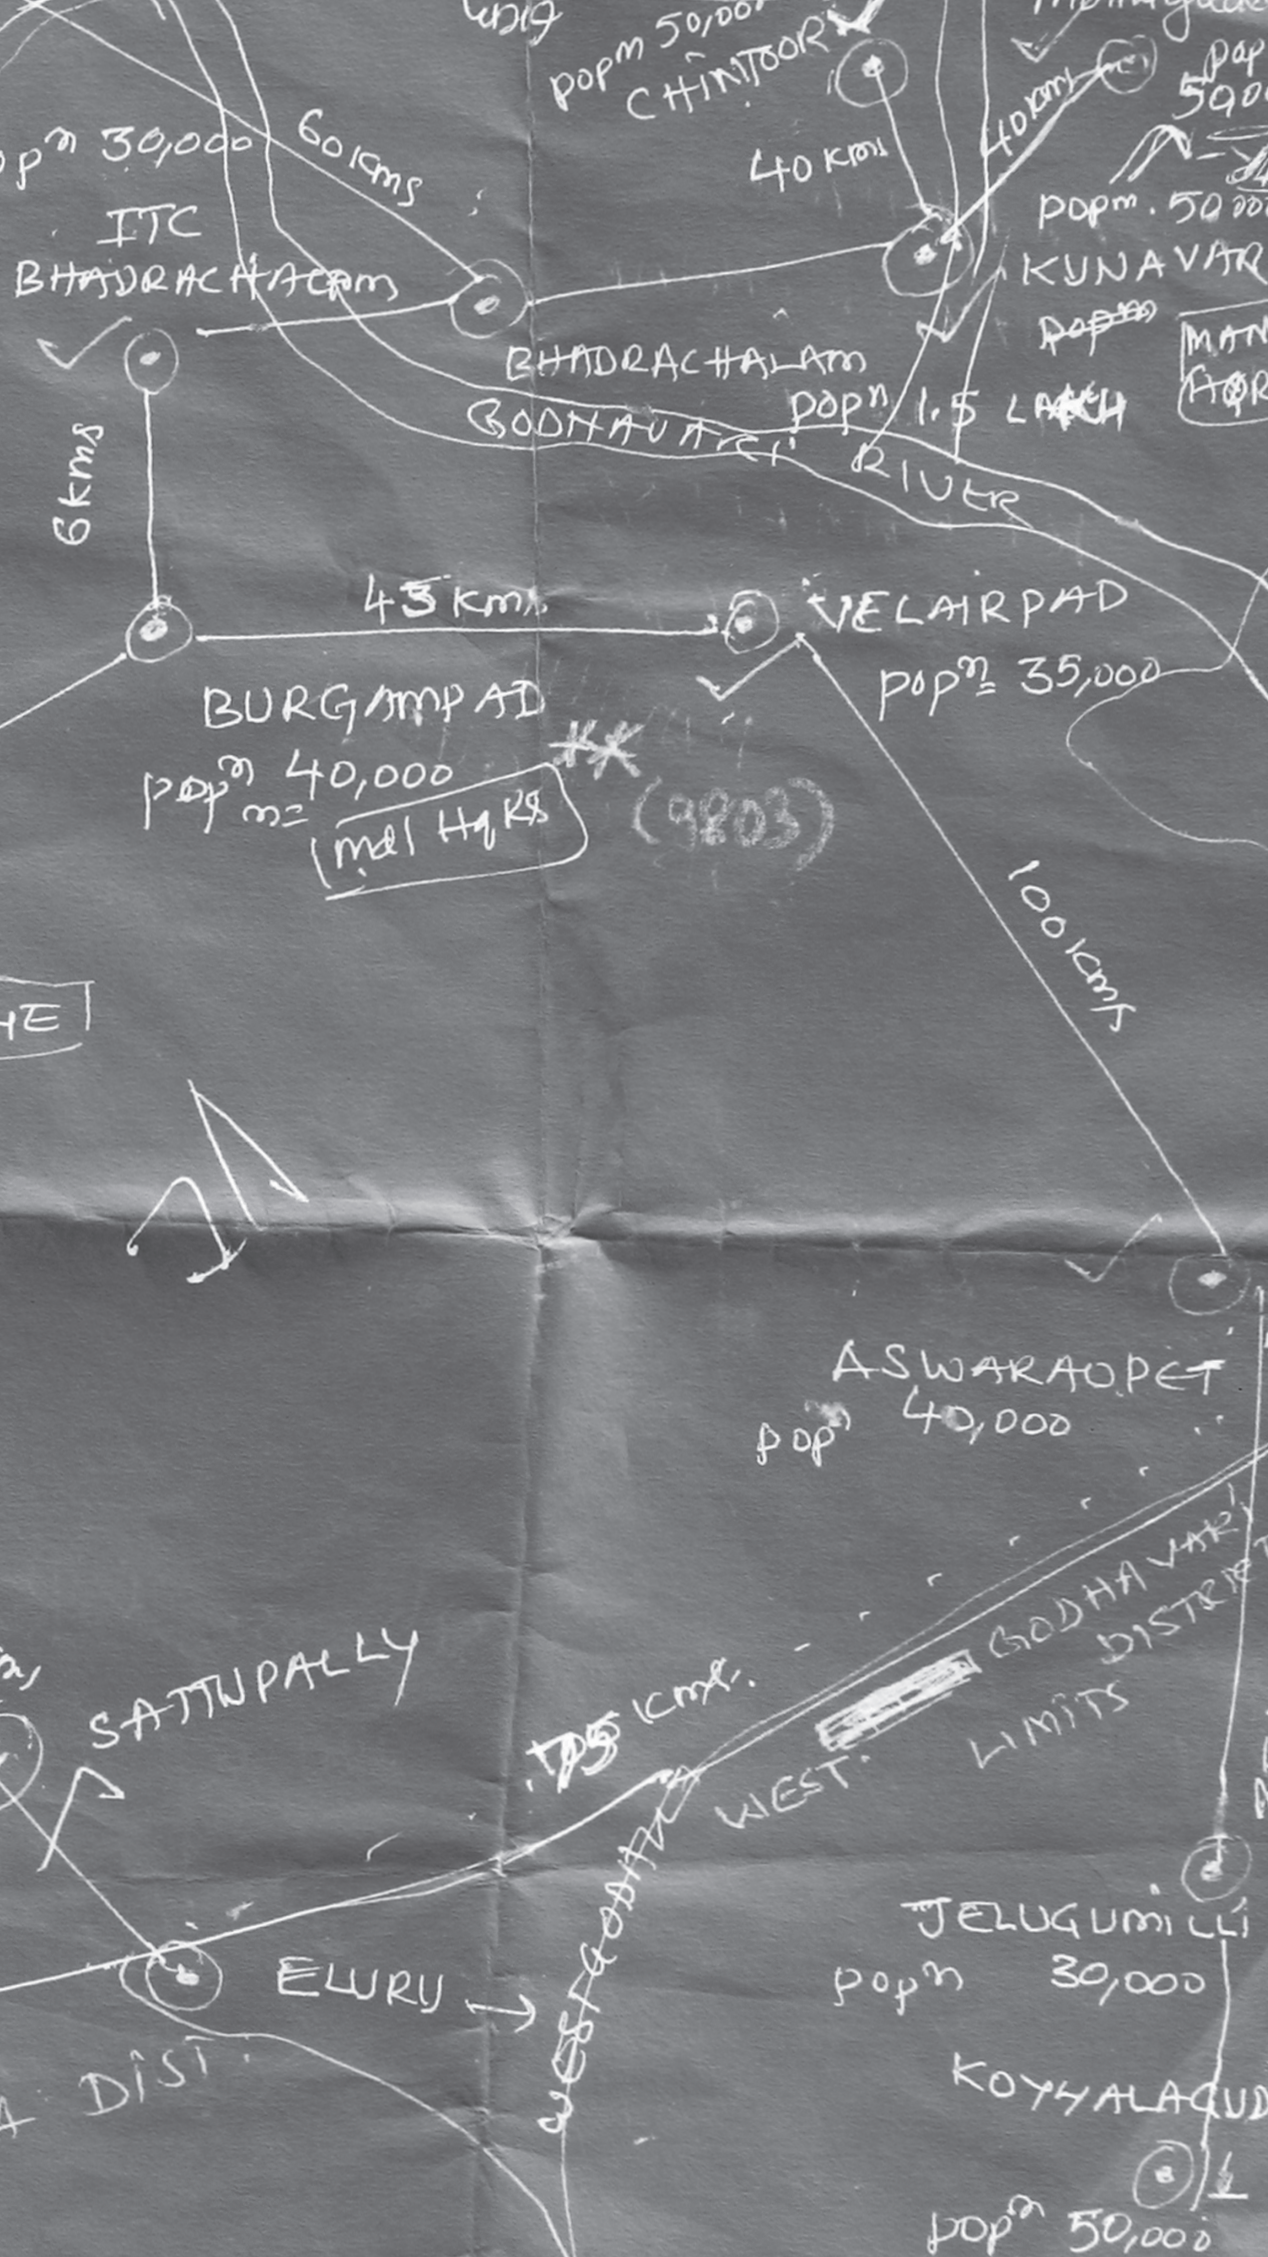 popm 50,00
CHINTOOR
pop
50,00
40 kms
40 kms
popn 30,000
60 kms
ITC
BHADRACHALAM
popm. 50 000
KUNAVAR
popm
MAN
BHADRACHALAM
popn 1.5 LAKH
GODHAVARI RIVER
6 kms
45 kms
VELAIRPAD
popn= 35,000
BURGAMPAD
popn 40,000
mdl HqRs
**
(9803)
100 kms
HE
ASWARAOPET
popn 40,000
SATTUPALLY
GODHAVARI
DISTRICT
WEST
LIMITS
kms.
WEST GODHA
JELUGUMILLI
popn 30,000
ELURU →
A DIST.
KOYYALAGUD
popn 50,000